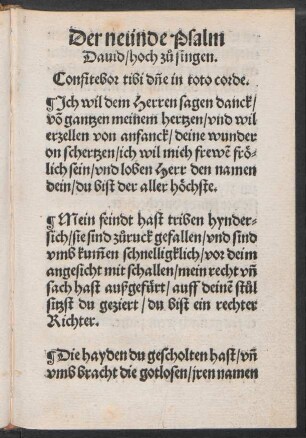 Der neünde Psalm
Dauid/hoch zů singen.
Confitebor tibi dñe in toto corde.
¶Ich wil dem Herren sagen danck/
võ gantzen meinem hertzen/vnd wil
erzellen von anfanck/deine wunder
on schertzen/ich wil mich frewẽ frö-
lich sein/vnd loben Herr den namen
dein/du bist der aller höchste.
¶Mein feindt hast triben hynder-
sich/sie sind zůruck gefallen/vnd sind
vmb kum̃en schnelligklich/vor deim
angesicht mit schallen/mein recht vñ
sach hast außgefürt/auff deinẽ stůl
sitzst du geziert/du bist ein rechter
Richter.
¶Die hayden du gescholten hast/vñ
vmb bracht die gotlosen/jren namen